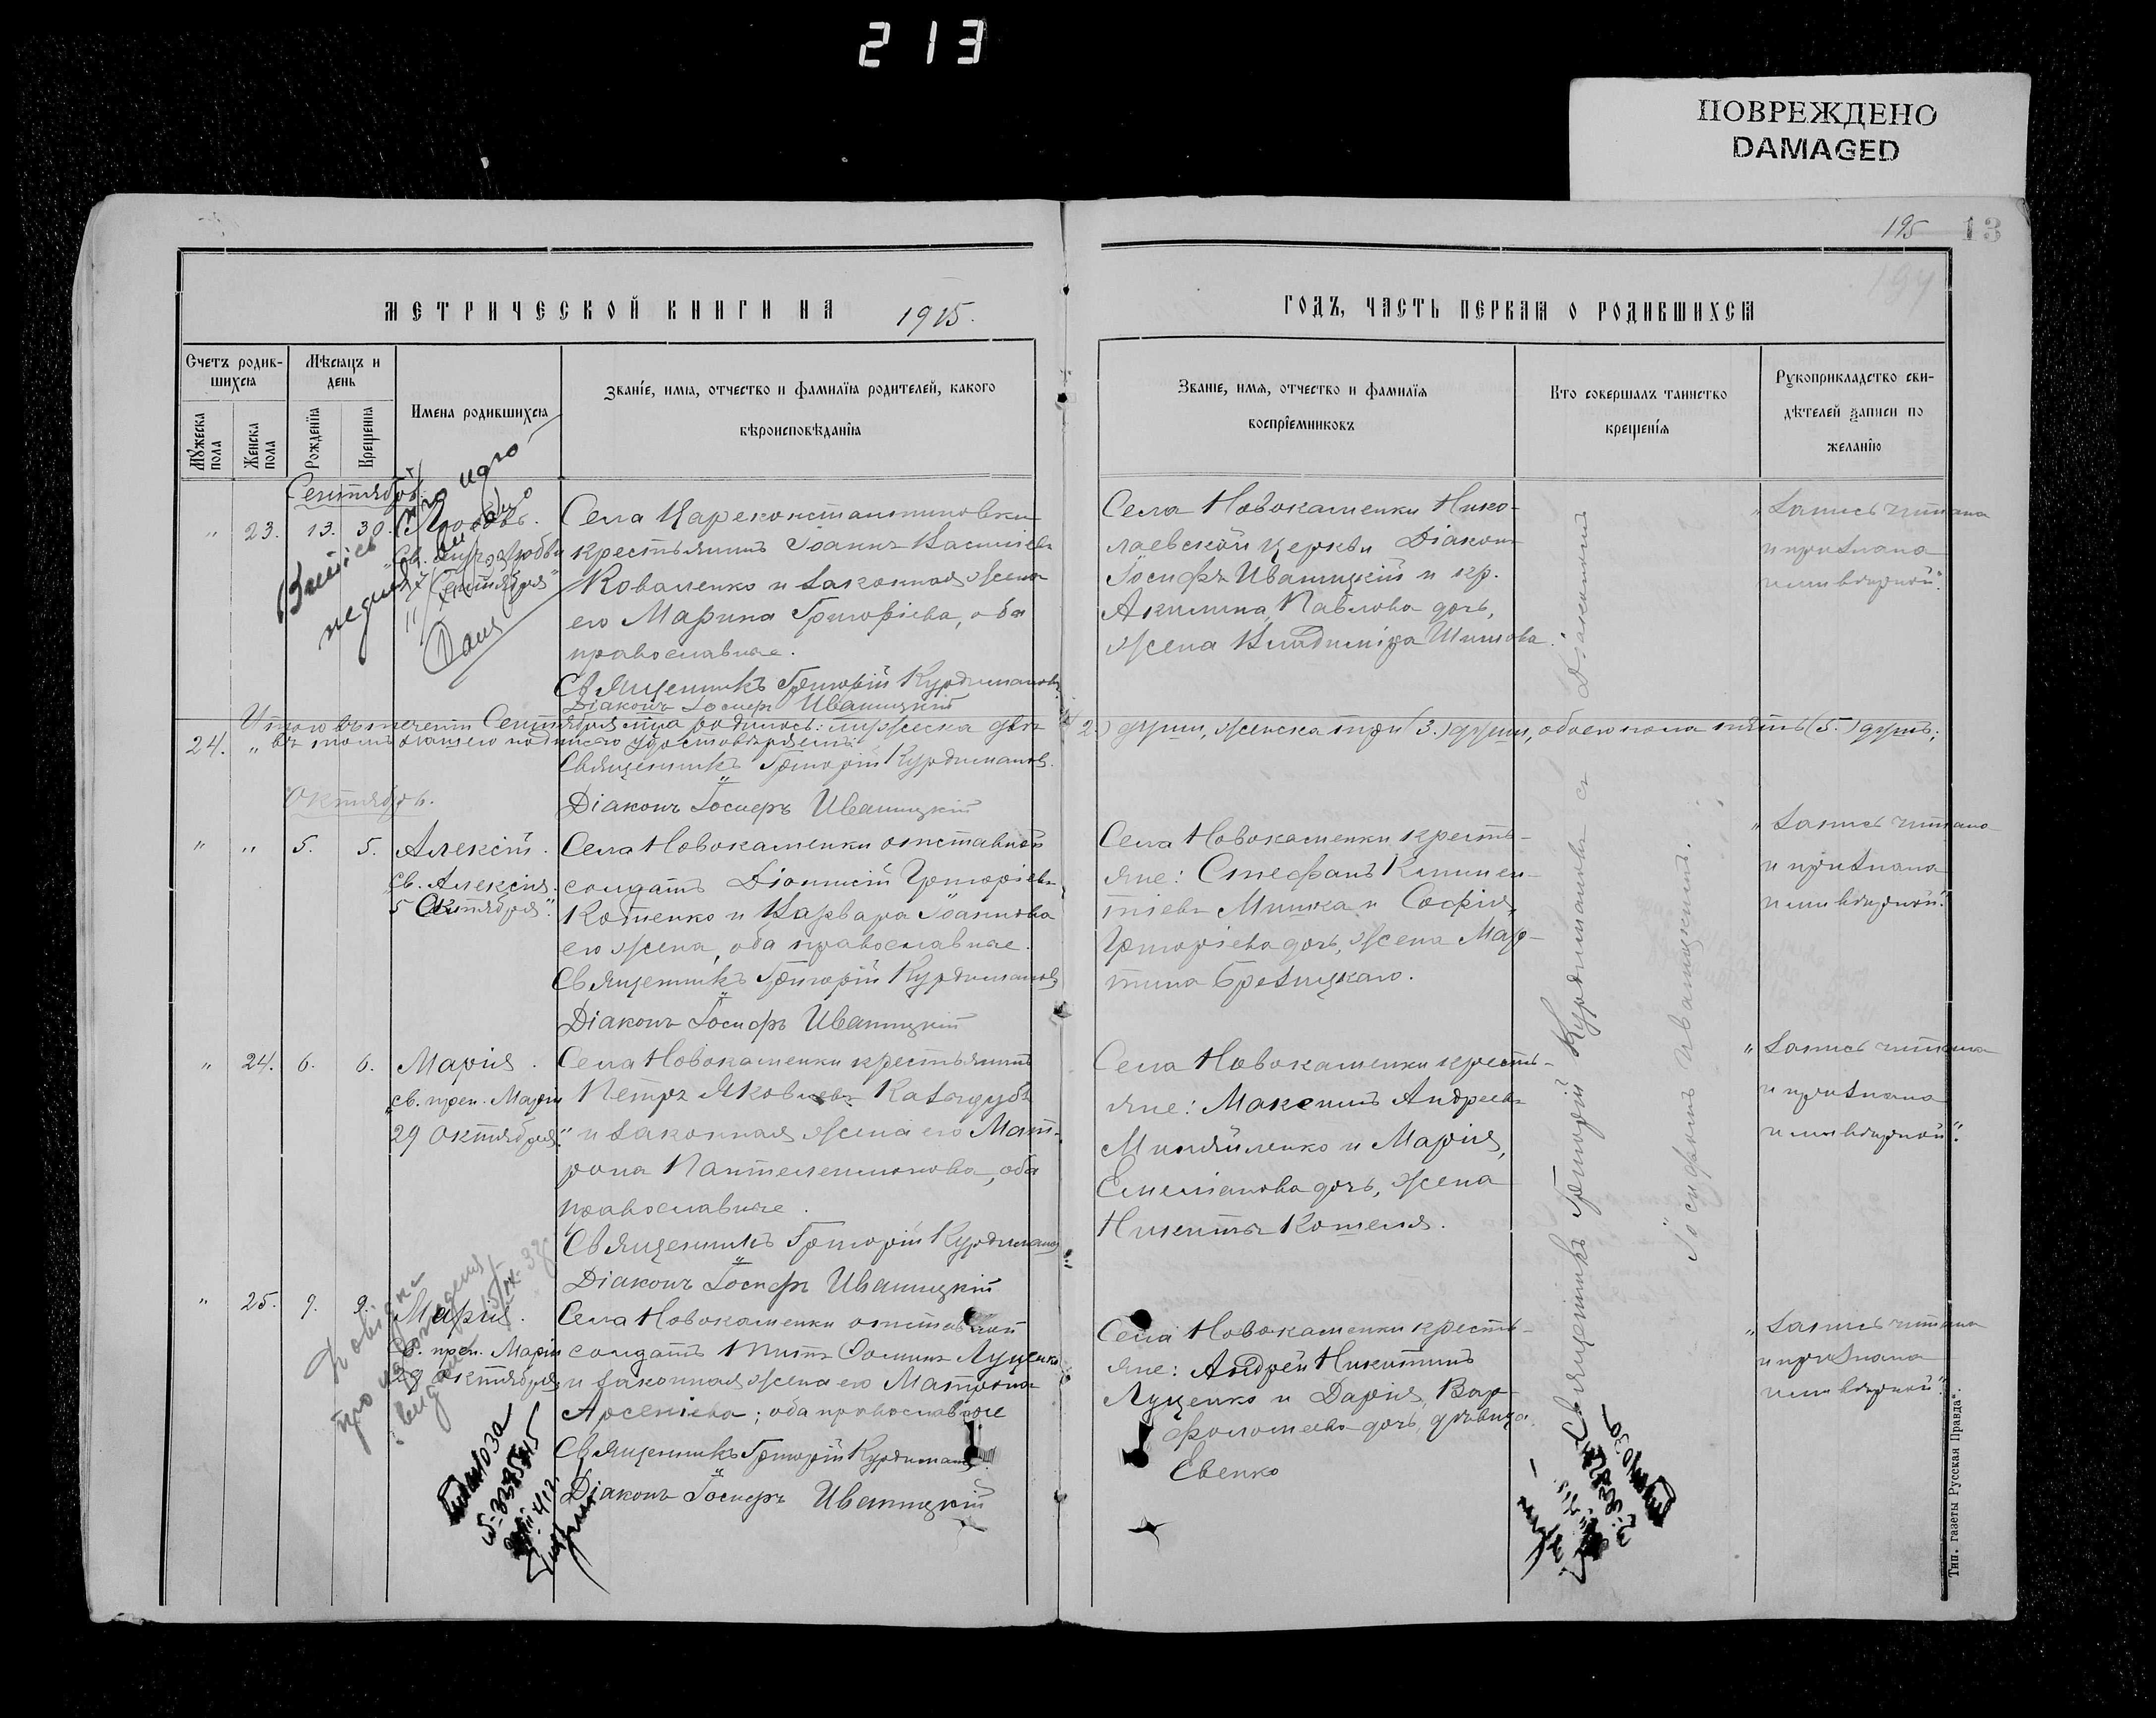 213
ПОВРЕЖДЕНО
DAMAGED
195
13
194
МЕТРИЧЕСКОЙ КНИГИ НА 1915.
ГОДЪ, ЧАСТЬ ПЕРВАЯ О РОДИВШИХСЯ
Счетъ родив-
шихся
Мѣсяцъ и
день
Мужеска пола
Женска пола
Рожденія
Крещенія
Имена родившихся
Званіе, имя, отчество и фамилія родителей, какого
вѣроисповѣданія
Званіе, имя, отчество и фамилія
воспріемниковъ
Кто совершалъ таинство
крещенія
Рукоприкладство сви-
дѣтелей записи по
желанію
Сентябрь.
" 23. 13. 30. Любовь.
17 Сентября"
Села Цареконстантиновки
крестьянинъ Іоаннъ Василіевъ
Коваленко и законная жена
его Марина Григоріева, оба
православные.
Священникъ Григорій Курдимановъ
Діаконъ Іосифъ Иваницкій
Села Новокаменки Нико-
лаевской церкви Діаконъ
Іосифъ Иваницкій и кр.
Акилина Павлова дочь,
жена Владиміра Шитова.
"Запись читана
и признана
ими вѣрной".
Итого въ теченіи Сентября м-ца родилось: мужеска двѣ (2.) души, женска три (3.) души, обоего пола пять (5.) душъ;
24. " въ томъ нашею подписью удостовѣряемъ:
Священникъ Григорій Курдимановъ.
Діаконъ Іосифъ Иваницкій
Октябрь.
" " 5. 5. Алексій.
Св. Алексія.
5 Октября".
Села Новокаменки отставной
солдатъ Діонисій Григоріевъ
Котенко и Варвара Іоаннова
его жена, оба православные.
Священникъ Григорій Курдимановъ
Діаконъ Іосифъ Иваницкій
Села Новокаменки кресть-
яне: Стефанъ Климен-
тіевъ Мишка и Софія,
Григоріева дочь, жена Мар-
тина Брезицкаго.
"Запись читана
и признана
ими вѣрной".
" 24. 6. 6. Марія.
"св. преп. Маріи
29 Октября."
Села Новокаменки крестьянинъ
Петръ Яковлевъ Казидубъ
и законная жена его Мат-
рона Пантелеимонова, оба
православные.
Священникъ Григорій Курдимановъ
Діаконъ Іосифъ Иваницкій
Села Новокаменки кресть-
яне: Максимъ Андреевъ
Миняйленко и Марія,
Емеліанова дочь, жена
Никиты Кошеля.
"Запись читана
и признана
ими вѣрной".
" 25. 9. 9. Марія.
св. преп. Маріи
29 Октября
Села Новокаменки отставной
солдатъ Титъ Ѳоминъ Луценко
и законная жена его Матрона
Арсеніева; оба православные
Священникъ Григорій Курдимановъ
Діаконъ Іосифъ Иваницкій
Села Новокаменки кресть-
яне: Андрей Никитинъ
Луценко и Дарія, Вар-
фоломеева дочь, дѣвица
Евенко
"Запись читана
и признана
ими вѣрной".
Священникъ Григорій Курдимановъ съ Діакономъ
Іосифомъ Иваницкимъ.
Тип. газеты „Русская Правда".